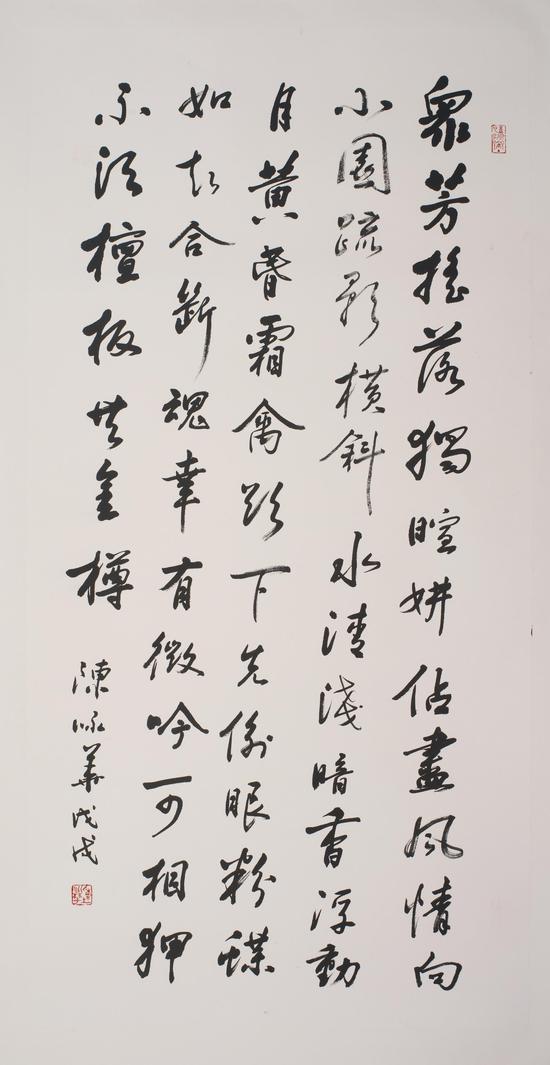 眾芳搖落獨暄妍佔盡風情向
小園疏影橫斜水清淺暗香浮動
月黃昏霜禽欲下先偷眼粉蝶
如知合斷魂幸有微吟可相狎
不須檀板共金樽
陳咏華戊戌